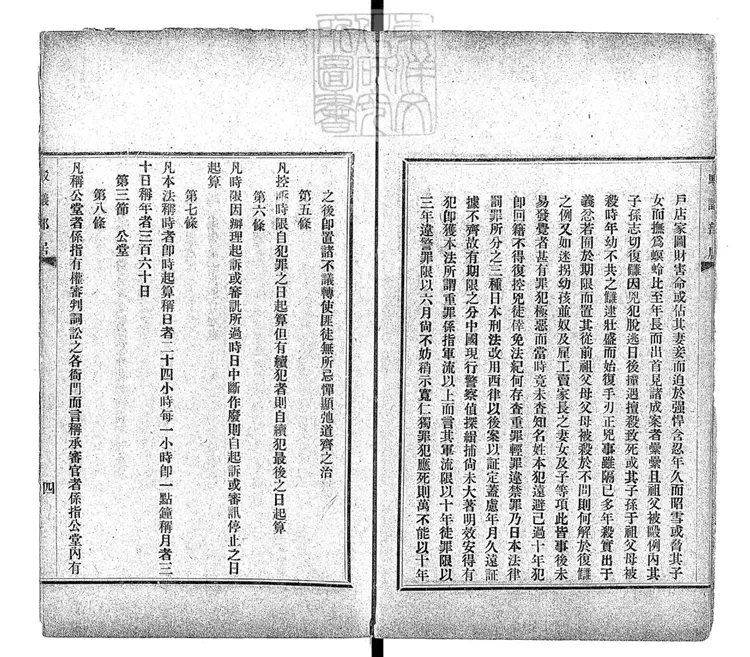 戶店家圖財害命或佔其妻妾而迫於強悍含忍年久而昭雪或脅其子
女而撫為螟蛉比至年長而出首見諸成案者纍纍且祖父被毆例內其
子孫志切復讎因兇犯脫逃日後撞遇擅殺致死或其子孫于祖父母被
殺時年幼不共之讎逮壯盛而始復手刃正兇事雖隔已多年殺實出于
義忿若囿於期限而置其從前祖父母父母被殺於不問則何解於復讎
之例又如迷拐幼孩並奴及雇工賣家長之妻女及子等項此皆事後未
易發覺者甚有罪犯極惡而當時竟未查知名姓本犯遠避已過十年犯
卽回籍不得復控兇徒倖免法紀何存查重罪輕罪違禁罪乃日本法律
罰罪所分之三種日本刑法改用西律以後案以証定蓋慮年月久遠証
據不齊故有期限之分中國現行警察值探緝捕尙未大著明效安得有
犯卽獲本法所謂重罪係指軍流以上而言其軍流限以十年徒罪限以
三年違警罪限以六月尙不妨稍示寬仁獨罪犯應死則萬不能以十年
之後卽置諸不議轉使匪徒無所忌憚顯弛道齊之治
第五條
凡控訴時限自犯罪之日起算但有續犯者則自續犯最後之日起算
第六條
凡時限因辦理起訴或審訊所過時日中斷作廢則自起訴或審訊停止之日
起算
第七條
凡本法稱時者卽時起算稱日者二十四小時每一小時卽一點鐘稱月者三
十日稱年者三百六十日
第三節 公堂
第八條
凡稱公堂者係指有權審判詞訟之各衙門而言稱承審官者係指公堂內有
四